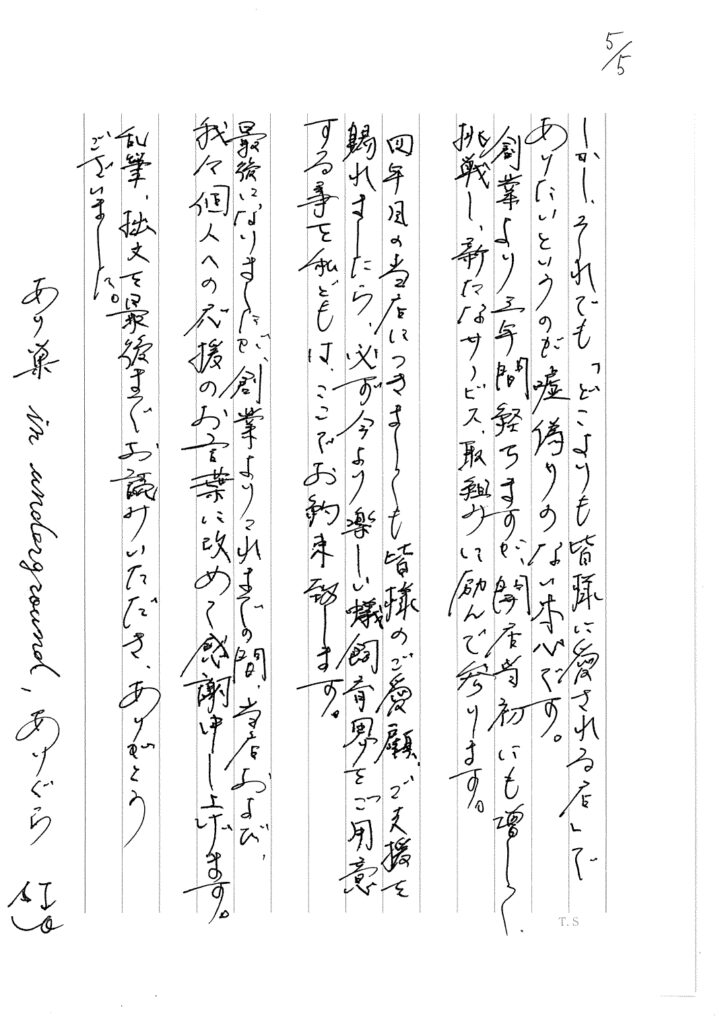 5/5
しかし、それでも「どこよりも皆様に愛される店」で
ありたいというのが嘘偽りのない本心です。
創業より三年間経ちますが、開店当初にも増して、
挑戦し、新たなサービス、取組みに励んで参ります。
四年目の当店につきましても皆様のご愛顧、ご支援を
賜れましたら、必ず今より楽しい蟻飼育界をご用意
する事を私どもは、ここでお約束致します。
最後になりましたが、創業よりこれまでの間、当店および、
我々個人への応援のお言葉に改めて感謝申し上げます。
乱筆、拙文を最後までお読みいただき、ありがとう
ございました。
あり巣 in underground, ありぐら
T.S